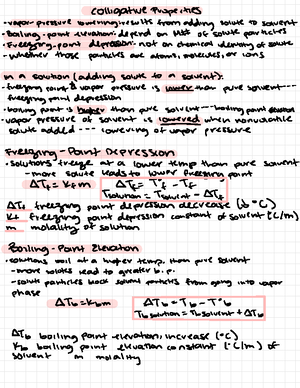 Colligative Properties
-vapor-pressure lowering: results from adding solute to solvent
-Boiling-point elevation: depend on # of solute particles
-Freezing-point depression: not on chemical identity of solute
-whether those particles are atoms, molecules, or ions
In a solution (adding solute to a solvent):
-freezing point & vapor pressure is lower than pure solvent---
freezing point depression
-boiling point is higher than pure solvent---boiling point elevation
-vapor pressure of solvent is lowered when nonvolatile
solute added --- lowering of vapor pressure
Freezing-Point Depression
•solutions freeze at a lower temp than pure solvent
-more solute leads to lower freezing point
ΔTf = Kf m
ΔTf = T°f - Tf
Tsolution = Tsolvent - ΔTf
ΔTf freezing point depression, decrease (°C)
Kf freezing point depression constant of solvent (°C/m)
m molality of solution
Boiling-Point Elevation
•solutions boil at a higher temp. than pure solvent
-more solutes lead to greater b.p.
-solute particles block solvent particles from going into vapor
phase
ΔTb = Kb m
ΔTb = Tb - T°b
Tb solution = Tb solvent + ΔTb
ΔTb boiling point elevation, increase (°C)
Kb boiling point elevation constant (°C/m) of
solvent m molality